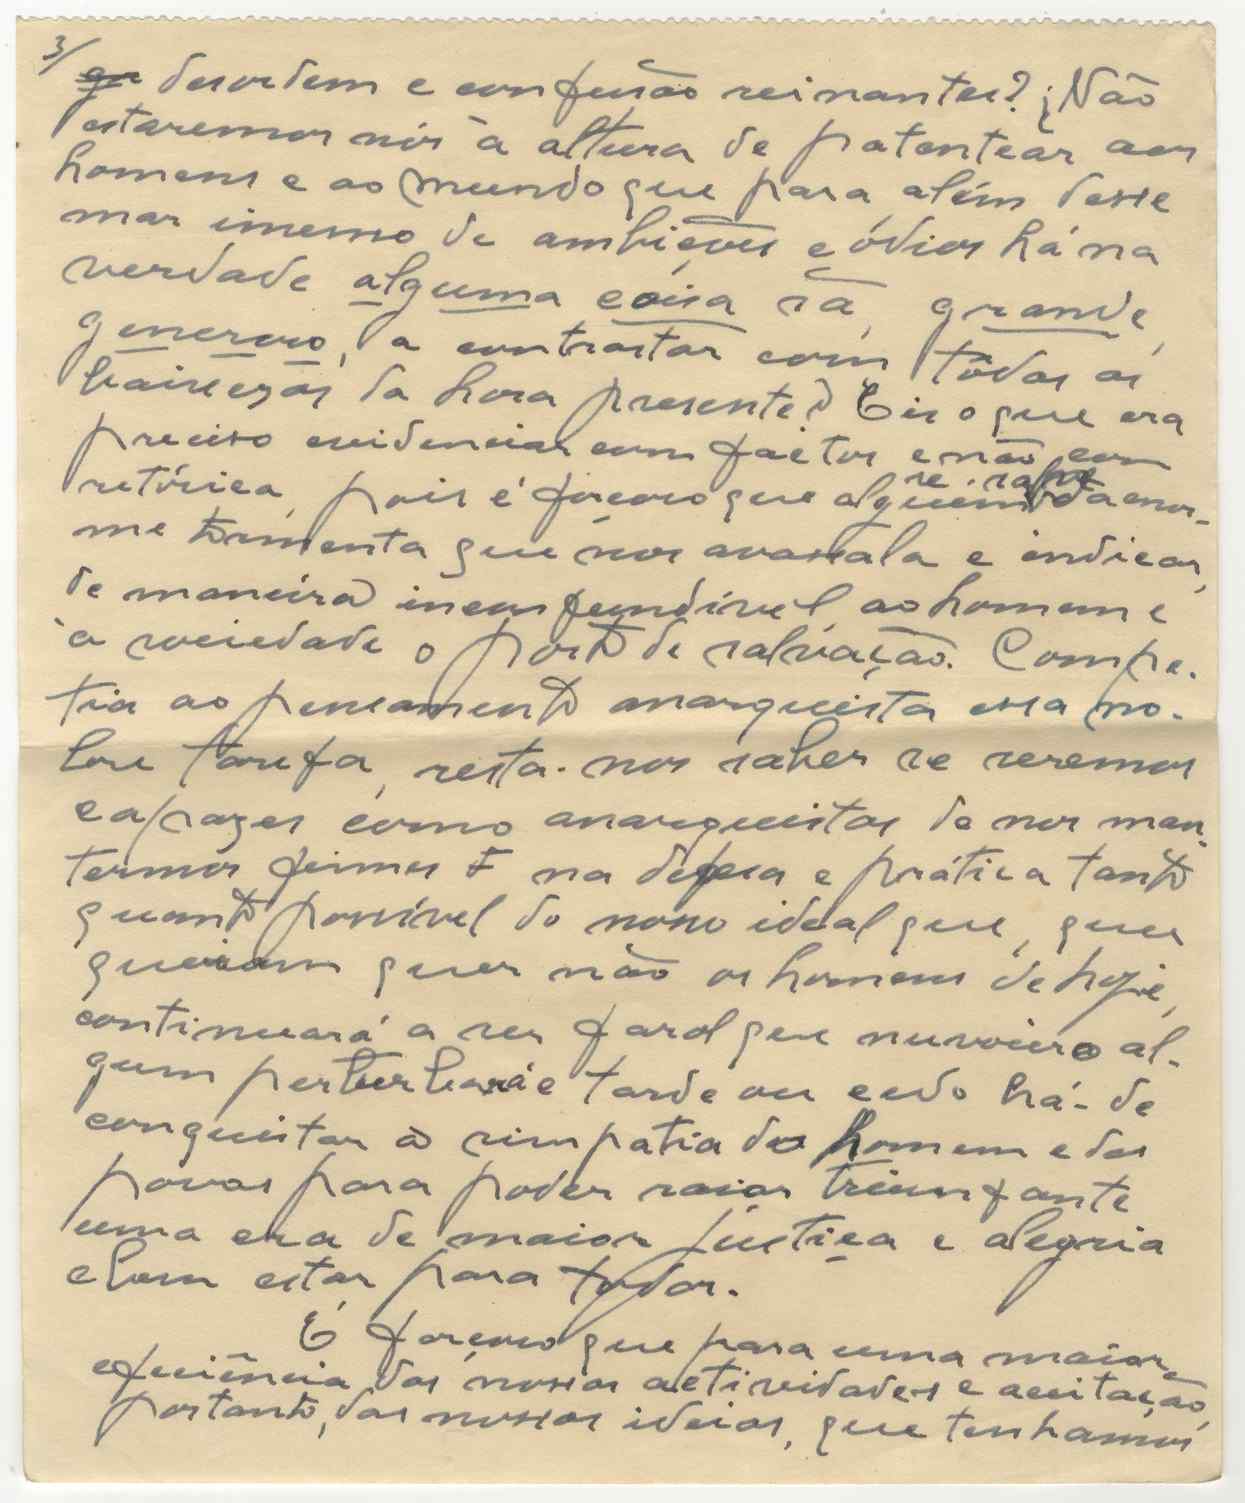 3/
desordem e confusão reinantes? ¿Não
estaremos nós à altura de patentear aos
homens e ao mundo que para além desse
mar imenso de ambições e ódios há na
verdade alguma coisa sã, grande,
generoso, a contrastar com tôdas as
baixezas da hora presente? Eis o que era
preciso evidenciar com factos e não com
retórica, pois é forçoso que alguém se salve da enor-
me tormenta que nos avassala e indicar,
de maneira inconfundível, ao homem e
à sociedade o porto de salvação. Compe-
tia ao pensamento anarquista essa no-
bre tarefa, resta-nos saber se seremos
capazes como anarquistas de nos man-
termos firmes na defesa e prática tanto
quanto possível do nosso ideal que, quer
queiram quer não os homens de hoje,
continuará a ser farol que nuvoeiro al-
gum perturbará e tarde ou cedo há-de
conquistar a simpatia do homem e dos
povos para poder raiar triunfante
uma era de maior justiça e alegria
e bem estar para todos.
É forçoso que para uma maior
eficiência das nossas actividades e aceitação,
portanto, das nossas ideias, que tenhamos